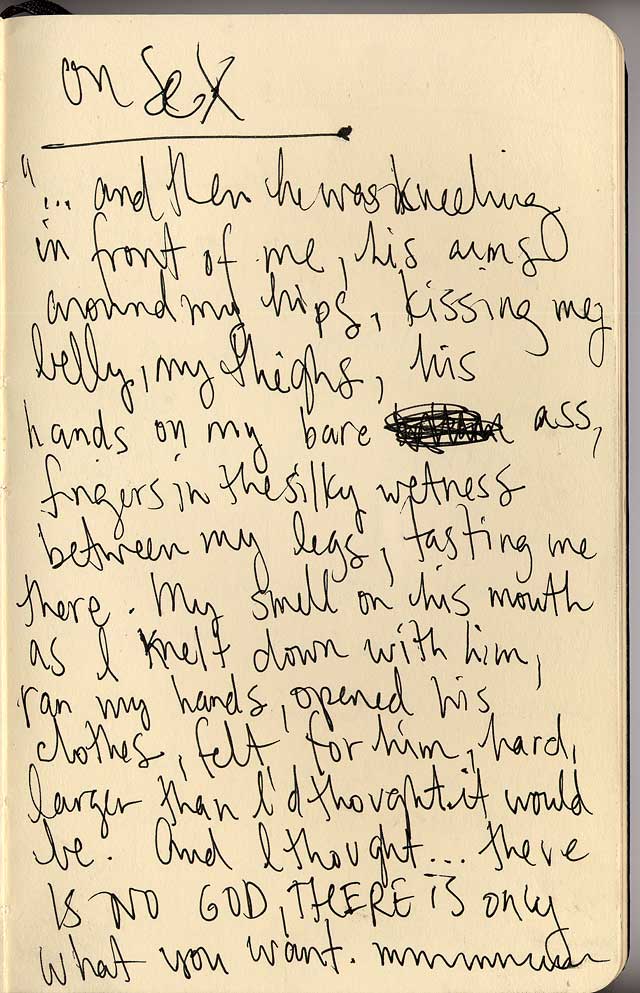 on Sex
"... and then he was kneeling
in front of me, his arms
around my hips, kissing my
belly, my thighs, his
hands on my bare ass,
fingers in the silky wetness
between my legs, tasting me
there. My smell on his mouth
as I knelt down with him,
ran my hands, opened his
clothes, felt for him, hard,
larger than I'd thought it would
be. And I thought... there
IS NO GOD, THERE IS only
what you want. mmmmmm